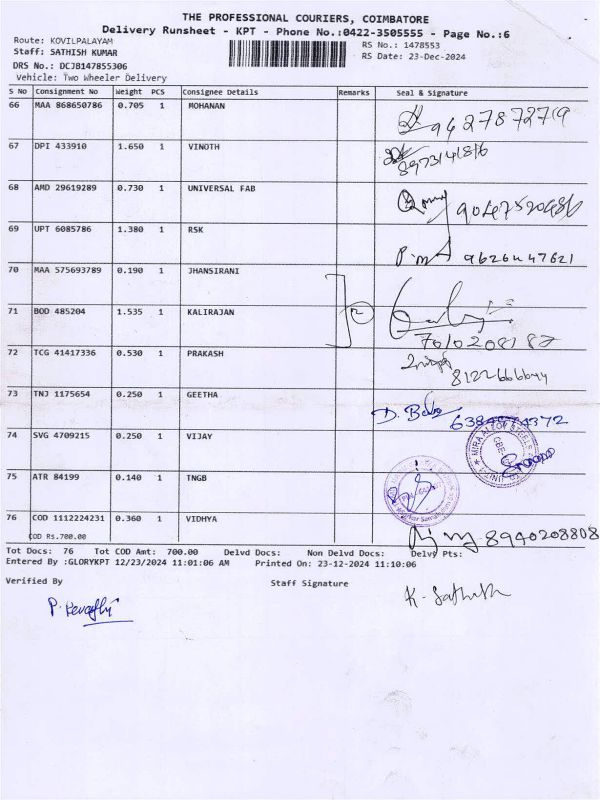 THE PROFESSIONAL COURIERS, COIMBATORE
Delivery Runsheet - KPT - Phone No.:0422-3505555 - Page No.:6
Route: KOVILPALAYAM
RS No.: 1478553
Staff: SATHISH KUMAR
RS Date: 23-Dec-2024
DRS No.: DCJB147855306
Vehicle: Two Wheeler Delivery
S No Consignment No Weight PCS Consignee Details Remarks Seal & Signature
66 MAA 868650786 0.705 1 MOHANAN
9627872719
67 DPI 433910 1.650 1 VINOTH
8973141816
68 AMD 29619289 0.730 1 UNIVERSAL FAB
9047520486
69 UPT 6085786 1.380 1 RSK
9626447621
70 MAA 575693789 0.190 1 JHANSIRANI
71 BOD 485204 1.535 1 KALIRAJAN
7010208187
72 TCG 41417336 0.530 1 PRAKASH
8122666644
73 TNJ 1175654 0.250 1 GEETHA
D. Babu
74 SVG 4709215 0.250 1 VIJAY
75 ATR 84199 0.140 1 TNGB
76 COD 1112224231 0.360 1 VIDHYA
COD Rs.700.00
8940208808
Tot Docs: 76 Tot COD Amt: 700.00 Delvd Docs: Non Delvd Docs: Delvy Pts:
Entered By :GLORYKPT 12/23/2024 11:01:06 AM Printed On: 23-12-2024 11:10:06
Verified By Staff Signature
K. Sathish